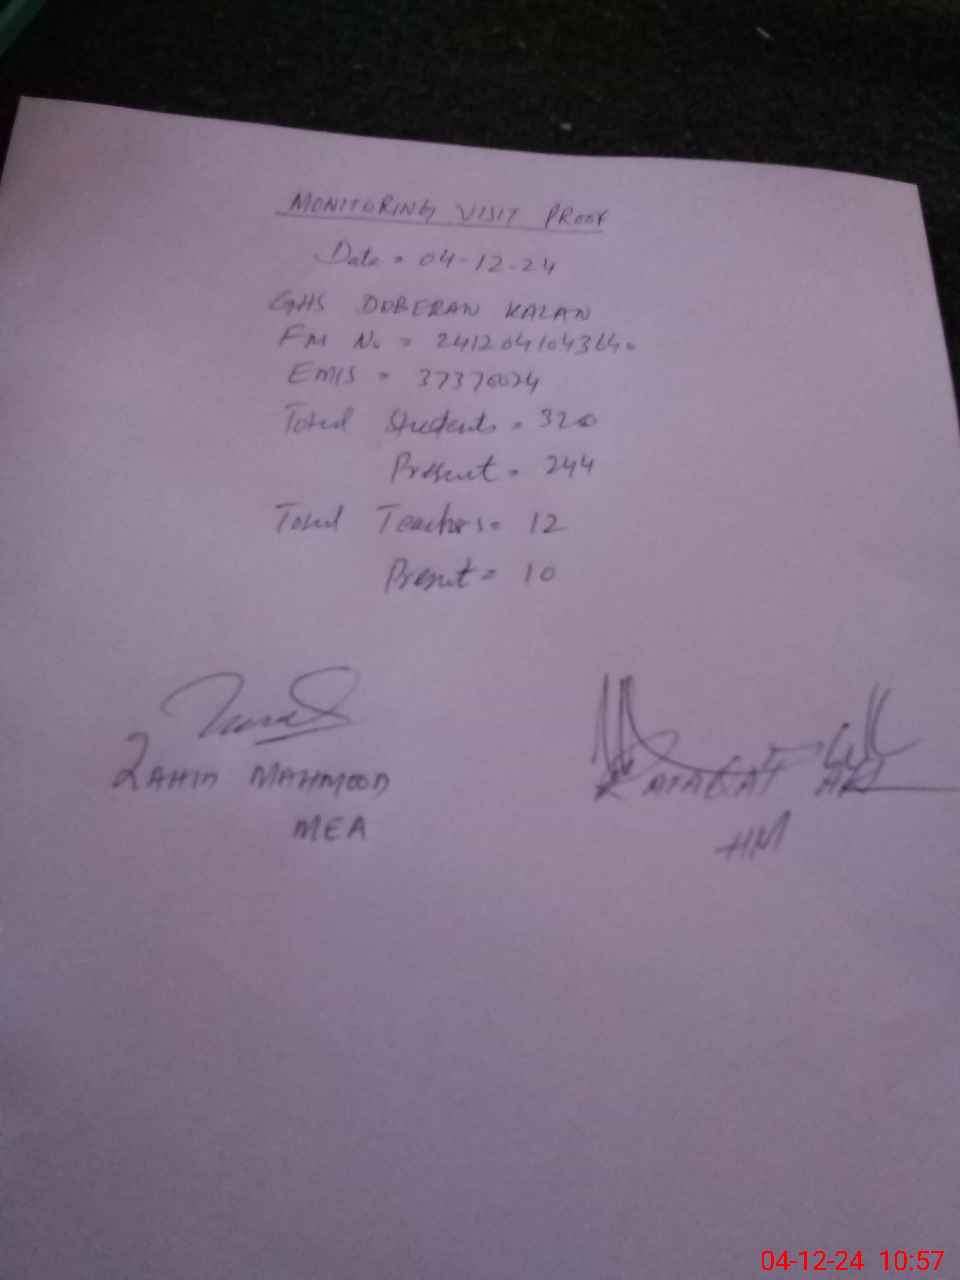 MONITORING VISIT PROOF
Date = 04-12-24
GHS DOBERAN KALAN
FM No = 241204104364०
EMIS = 37370024
Total Students = 320
Present = 244
Total Teachers = 12
Present = 10
ZAHID MAHMOOD
MEA
HM
04-12-24 10:57